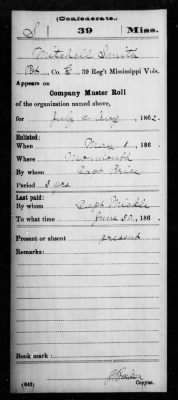 (Confederate.)
S 39 Miss.
Mitchell Smith
Pvt, Co. 39 Reg't Mississippi Vols.
Appears on
Company Muster Roll
of the organization named above,
for July & Aug, 1862.
Enlisted:
When May 1, 186 .
Where Monmouth
By whom Capt Price
Period 3 yrs
Last paid:
By whom Capt
To what time June 30, 186 .
Present or absent present
Remarks:
Book mark:
(642)
Copyist.